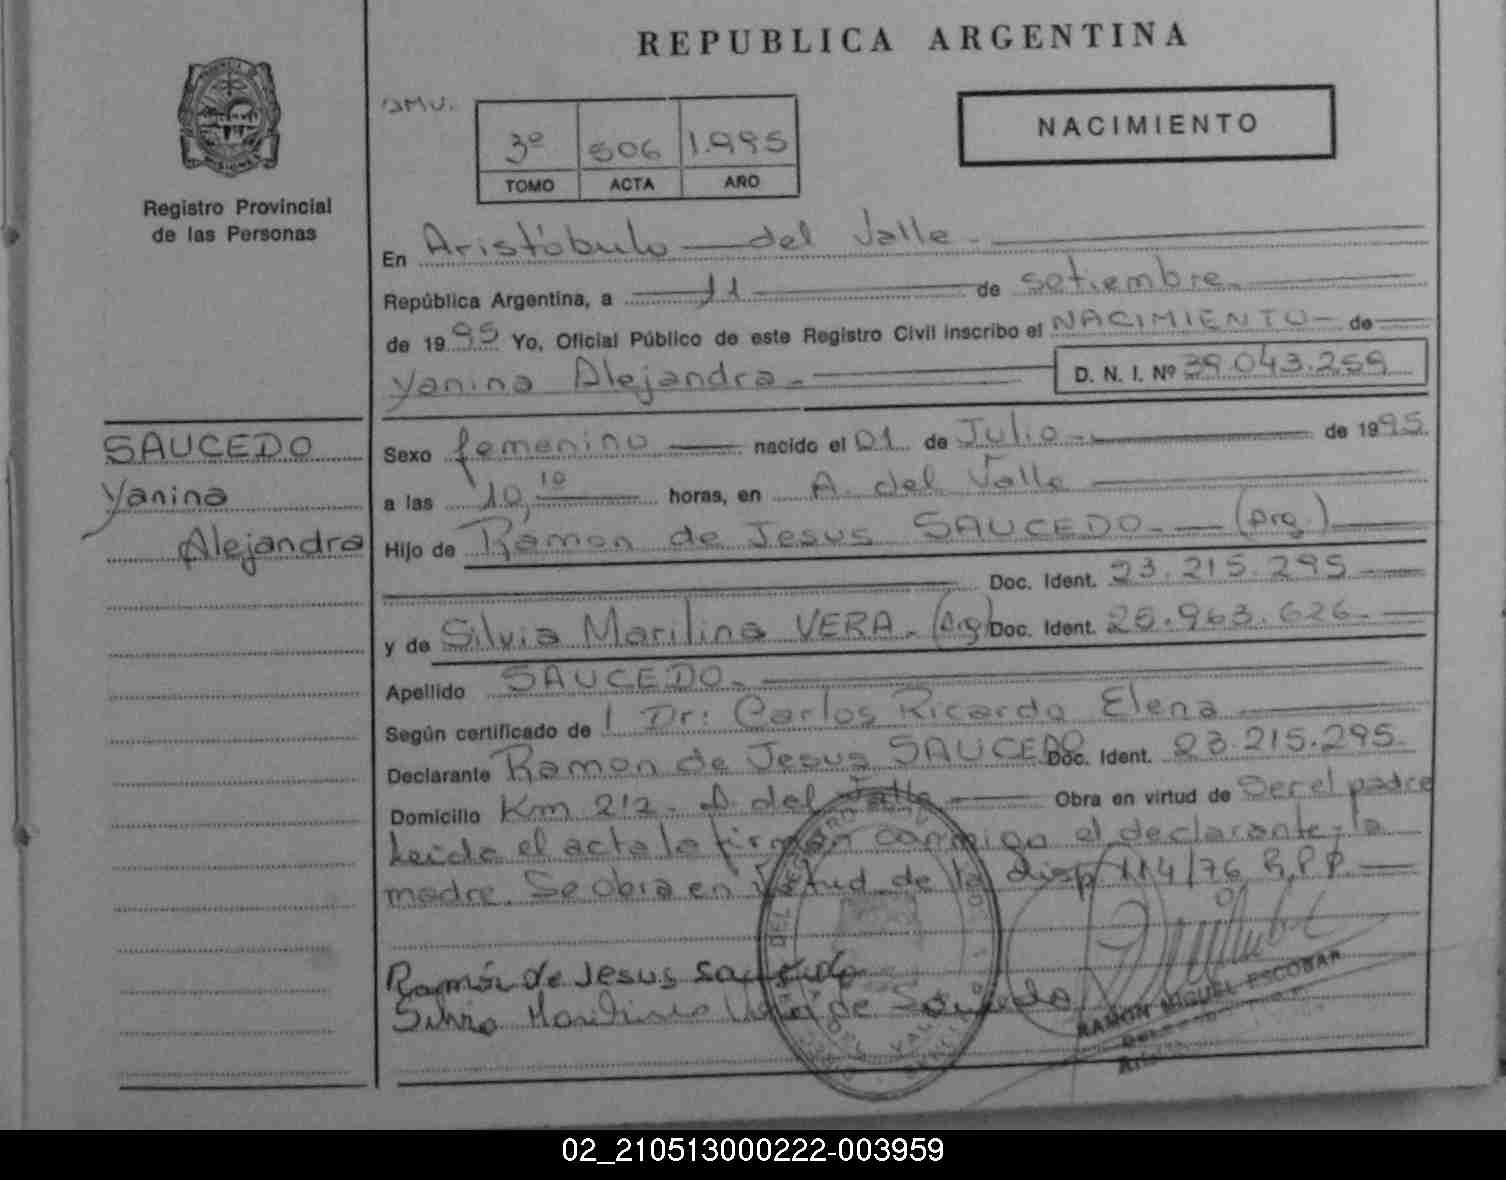 REPUBLICA ARGENTINA
NACIMIENTO
3º 506 1.995
TOMO ACTA AÑO
Registro Provincial
de las Personas
En Aristóbulo del Valle.
República Argentina, a 11 de setiembre
de 1995 Yo, Oficial Público de este Registro Civil inscribo el NACIMIENTO de
Yanina Alejandra. D. N. I. Nº 39.043.259
SAUCEDO
Yanina
Alejandra
Sexo femenino nacido el 01 de Julio de 1995
a las 10,10 horas, en A. del Valle
Hijo de Ramon de Jesus SAUCEDO. (Arg.)
Doc. Ident. 23.215.295
y de Silvia Marilina VERA. (Arg) Doc. Ident. 963.626
Apellido SAUCEDO.
Según certificado de Dr: Carlos Ricardo Elena
Declarante Ramon de Jesus SAUCEDO Doc. Ident. 23.215.295.
Domicilio Km 212. A. del Valle Obra en virtud de Ser el padre
Leida el acta la firman conmigo el declarante y la
madre. Se obra en virtud de la disp 114/76 R.P.P.
Ramón de Jesus Saucedo
Silvia Marilina Vera de Saucedo
RAMON MIGUEL ESCOBAR
02_210513000222-003959